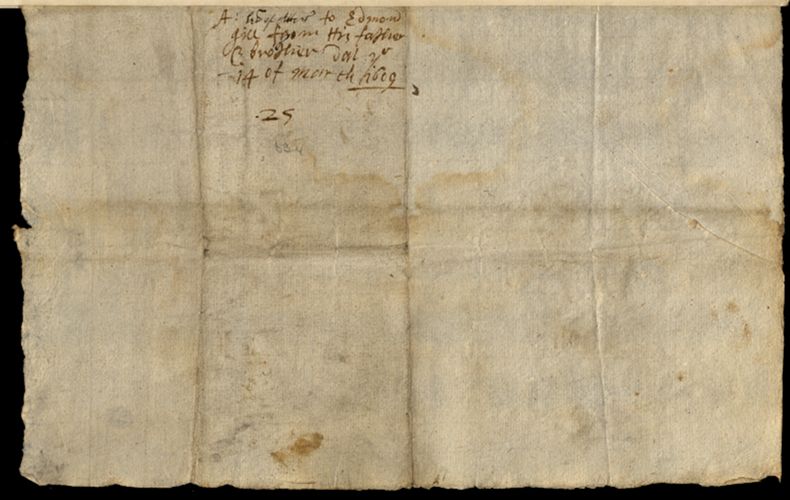 A: to Edmond
gill from His father
& brother Dat ye
14 of march 1609
.25